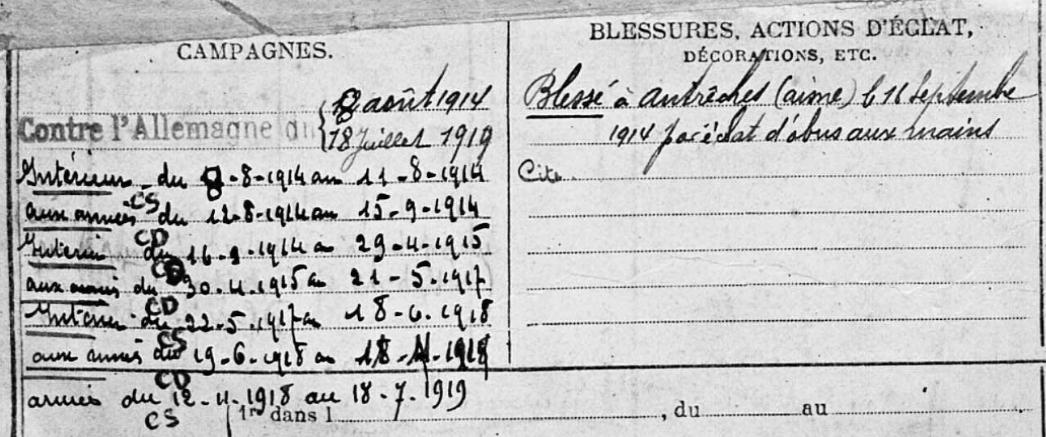 CAMPAGNES.
Contre l'Allemagne du { 8 août 1914
18 Juillet 1919
Intérieur du 8-8-1914 au 11-8-1914
CS
aux armées du 12-8-1914 au 15-9-1914
CD
Intérieur du 16-9-1914 au 29-4-1915
CD
aux armées du 30-4-1915 au 21-5-1917
CD
Intérieur du 22-5-1917 au 18-6-1918
CS
aux armées du 19-6-1918 au 18-11-1918
CD
armées du 12-11-1918 au 18-7-1919
CS
BLESSURES, ACTIONS D'ÉCLAT,
DÉCORATIONS, ETC.
Blessé à Autrèches (aisne) le 16 Septembre
1914 par éclat d'obus aux mains
Cité
1er dans l , du au